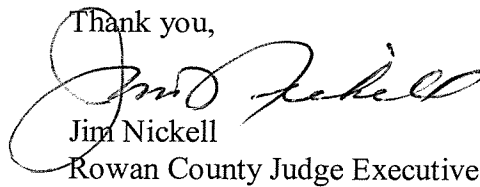 Thank you,
Jim Nickell
Jim Nickell
Rowan County Judge Executive